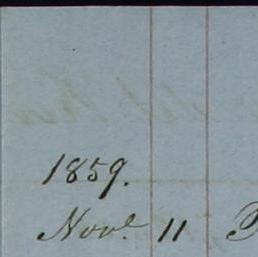 1859.
Novr. 11